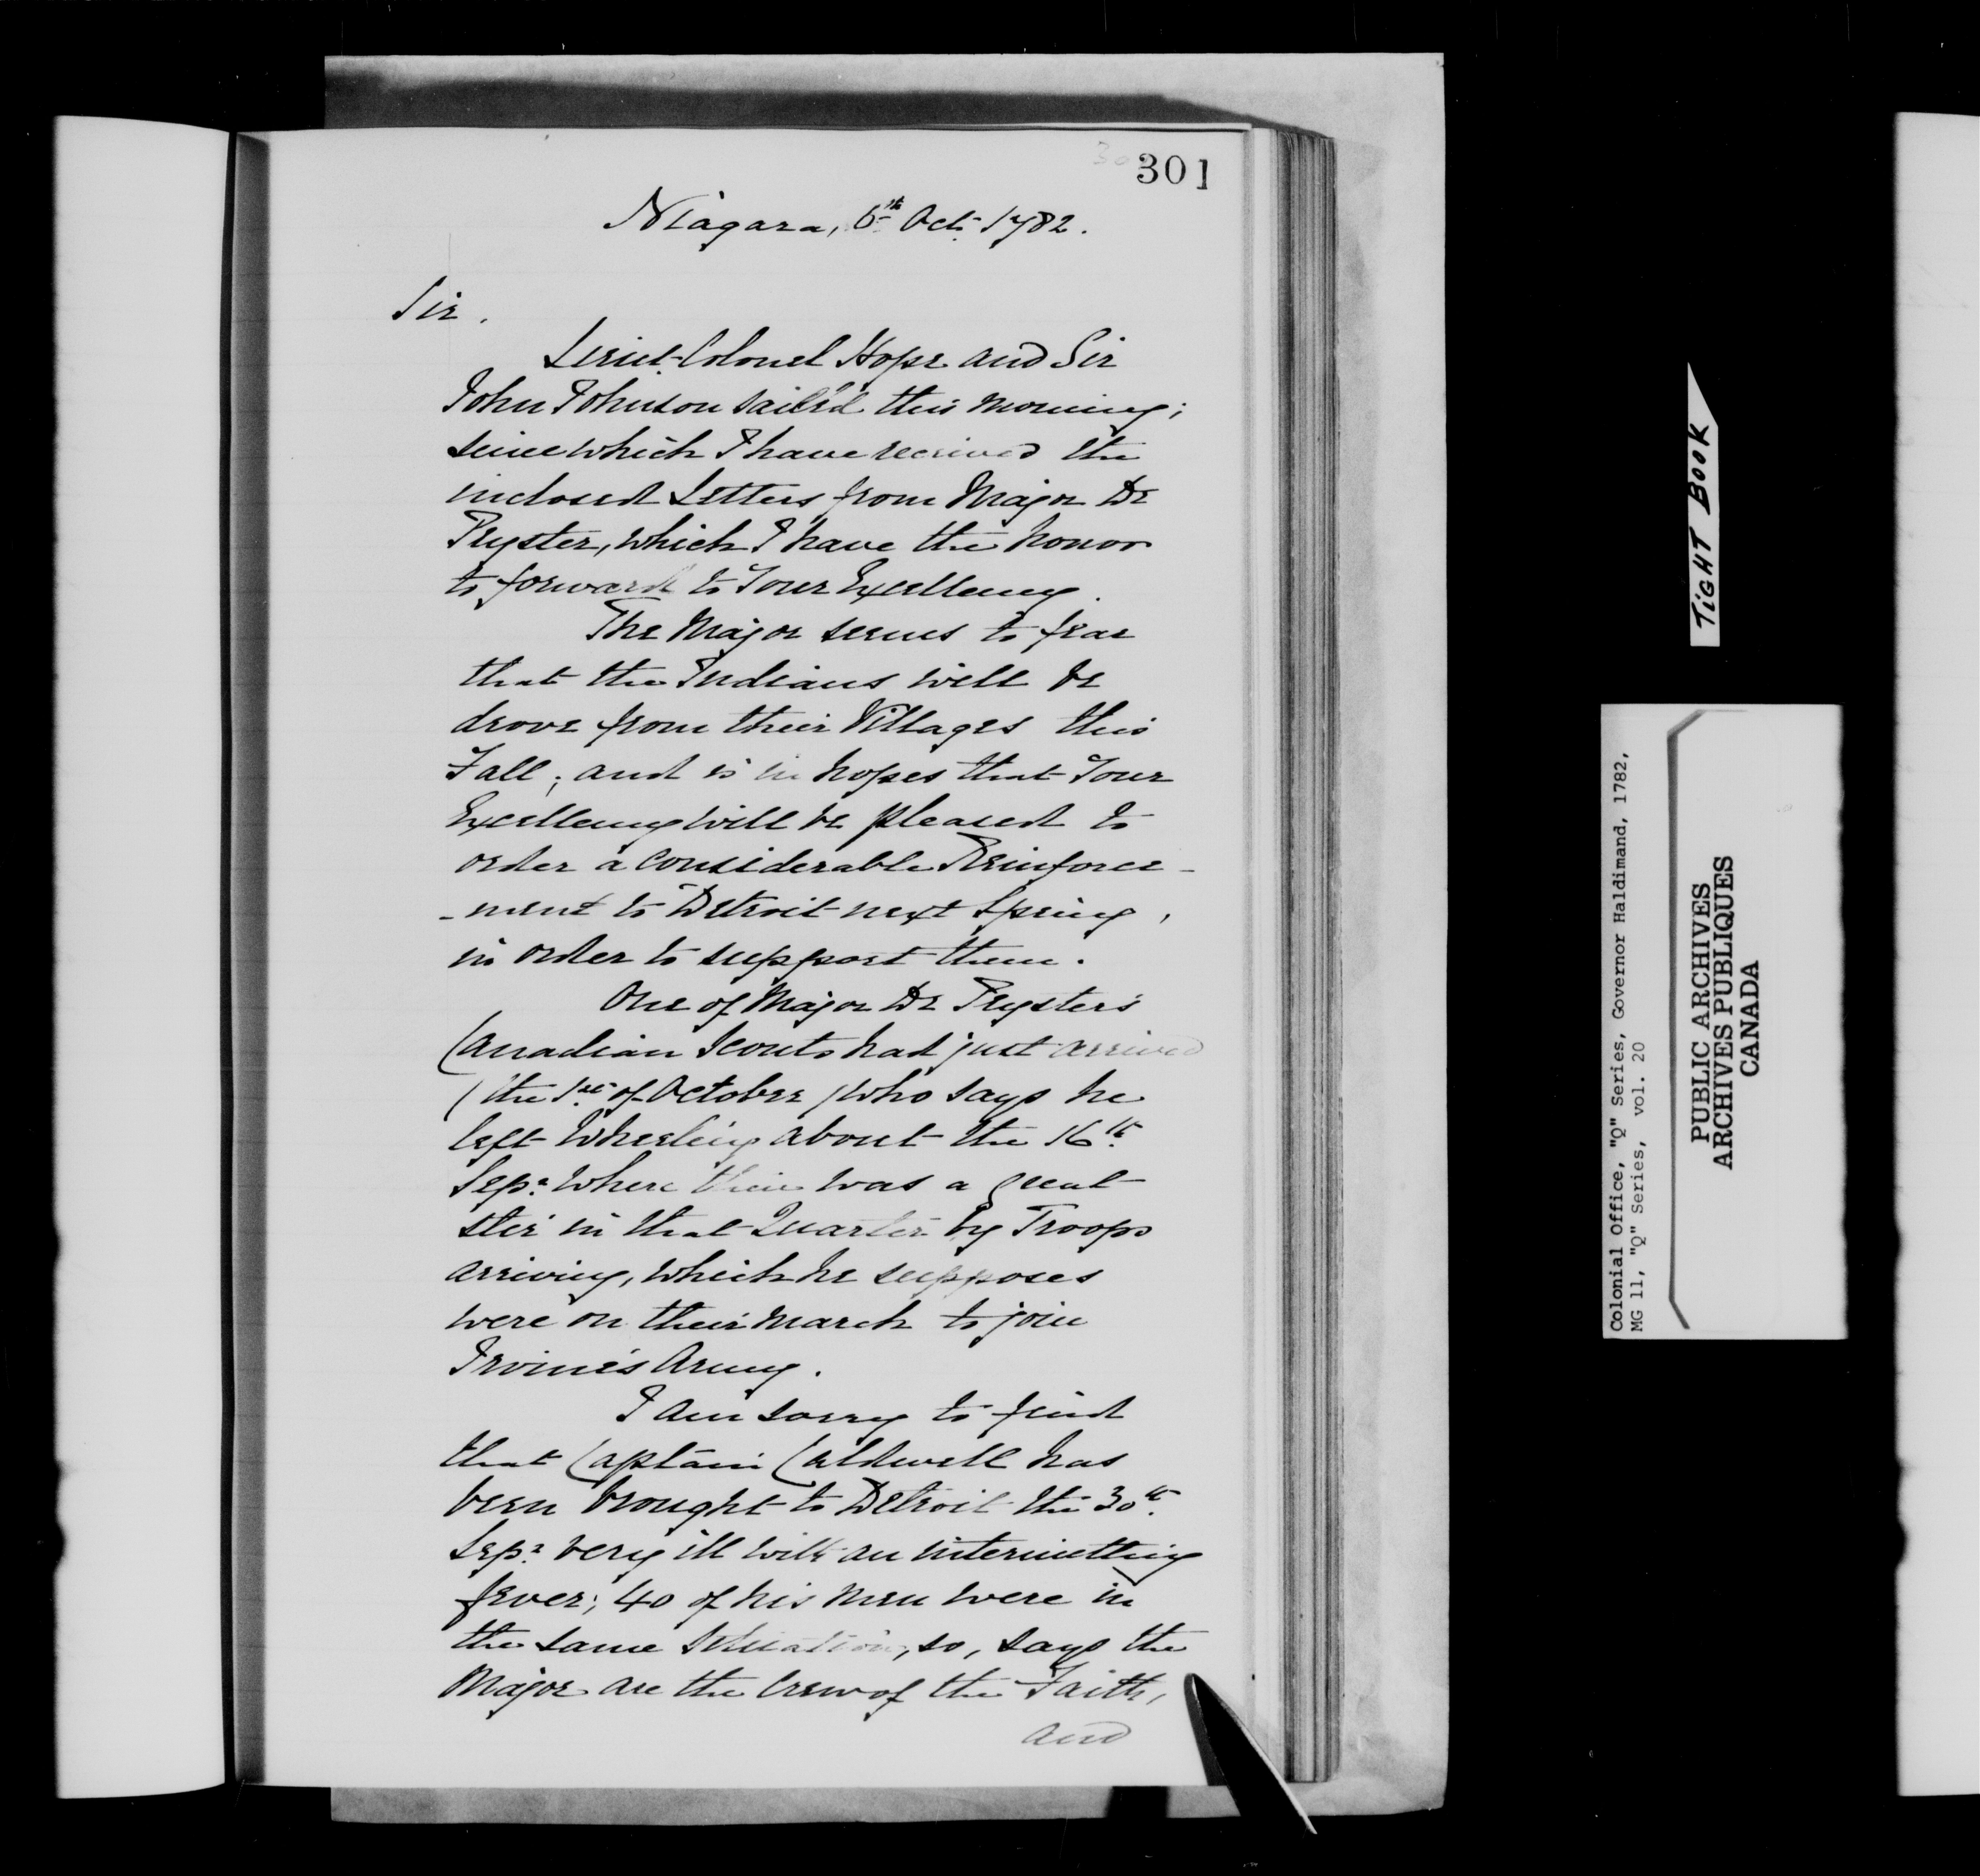 301
Niagara, 6th Oct. 1782.
Sir.
Lieut. Colonel Hope and Sir
John Johnson sail'd this morning;
since which I have received the
inclosed Letters from Major De
Peyster, which I have the honor
to forward to Your Excellency.
The Major seems to fear
that the Indians will be
drove from their Villages this
Fall, and is in hopes that Your
Excellency will be pleased to
order a considerable Reinforce-
-ment to Detroit next Spring,
in order to support them.
One of Major De Peyster's
Canadian Scouts had just arrived
(the 1st of October) who says he
left Wheeling about the 16th
Sepr. where there was a great
stir in that Quarter by Troops
arriving, which he supposes
were on their march to join
Irvine's Army.
I am sorry to find
that Captain Caldwell has
been brought to Detroit the 30th
Sepr. very ill with an intermitting
fever; 40 of his men were in
the same situation, so, says the
Major are the Crew of the Faith,
and
TIGHT BOOK
Colonial Office, "Q" Series, Governor Haldimand, 1782,
MG 11, "Q" Series, vol. 20
PUBLIC ARCHIVES
ARCHIVES PUBLIQUES
CANADA